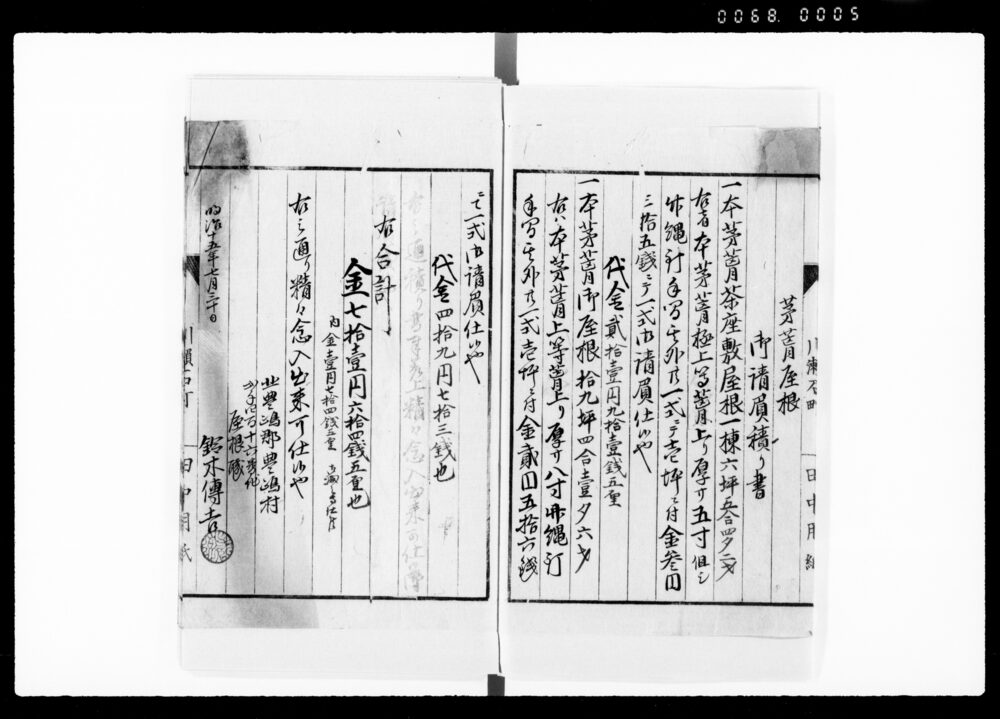 0068. 0005
茅葺屋根
御請負積り書
一本茅葺茶座敷屋根一棟六坪五合四夕二才
右者本茅葺極上等葺上り厚サ五寸但シ
竹縄釘手間其外共一式ニテ壱坪ニ付金参円
三拾五銭ニテ一式御請負仕候也
代金貳拾壹円九拾壹銭五厘
一本茅葺御屋根拾九坪四合壹夕六才
右ハ本茅葺上等葺上り厚サ八寸竹縄釘
手間其外共一式壱坪ニ付金貳円五拾六銭
ニテ一式御請負仕候也
代金四拾九円七拾三銭也
右合計
金七拾壹円六拾四銭五厘也
内金壹円七拾四銭五厘
右之通り精々念入出来可仕候也
明治十五年七月三十日
北豊嶋郡豊嶋村
屋根職
鈴木傳吉
田中用紙